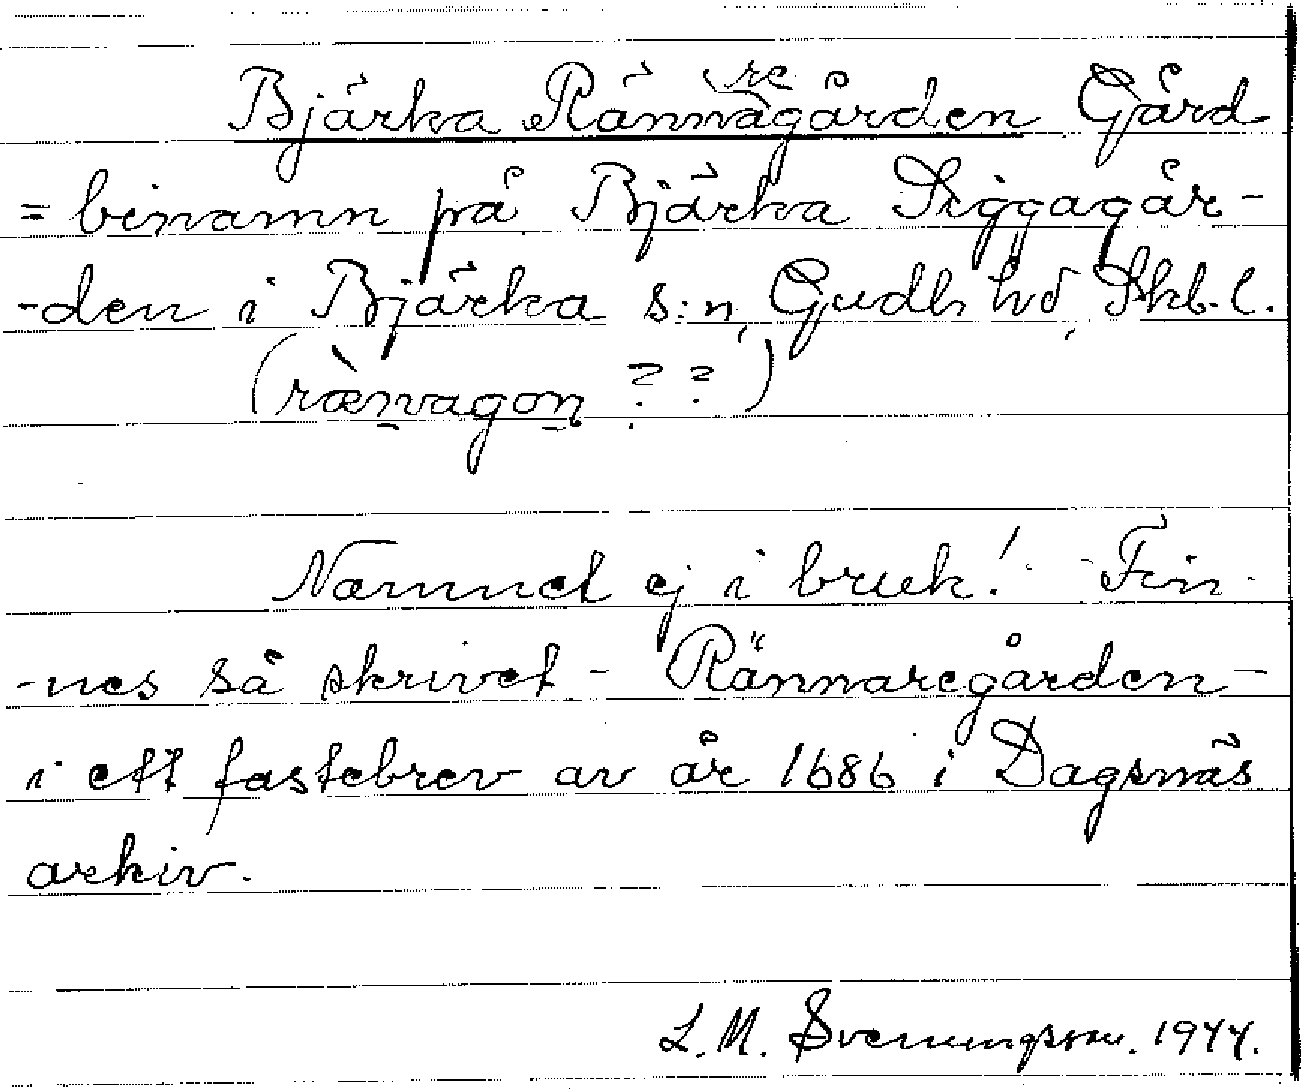 Bjärka Ränna(re)gården Gård
= binamn på Bjärka Siggagår-
-den i Bjärka s:n, Gudh. hd, Skb. l.
(rænvagon ??)
Namnet ej i bruk! Fin-
-nes så skrivet - Rännaregården -
i ett fastebrev av år 1686 i Dagsnäs
arkiv.
L. M. Svenungsson. 1944.